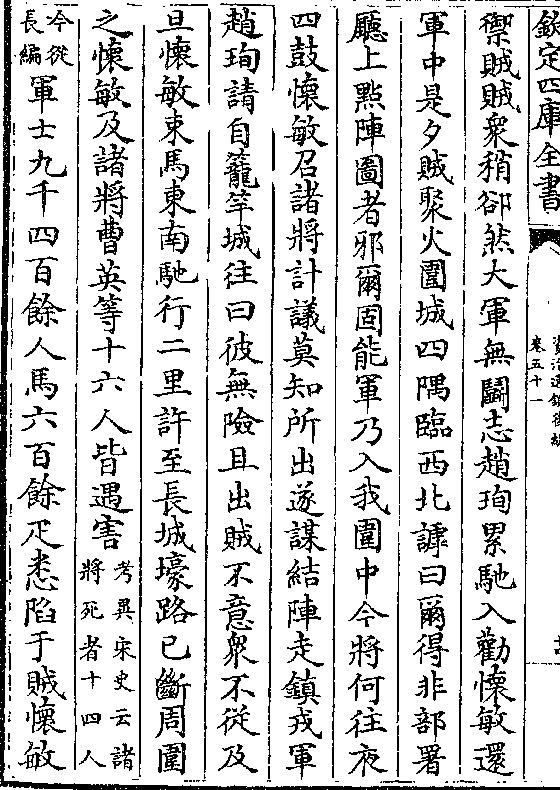 欽定四庫全書
卷五十一
禦賊賊衆稍卻然大軍無鬬志趙珣累馳入勸懷敏還
軍中是夕賊聚火圍城四隅臨西北謼曰爾得非部署
廳上㸃陣圖者邪爾固能軍乃入我圍中今將何往夜
四鼓懷敏召諸將計議莫知所出遂謀結陣走鎮戎軍
趙珣請自籠竿城往曰彼無險且出賊不意衆不從及
旦懷敏東馬東南馳行二里許至長城壕路已斷周圍
之懷敏及諸將曹英等十六人皆遇害考異宋史云諸
將死者十四人
今從
長編軍士九千四百餘人馬六百餘疋悉陷于賊懷敏